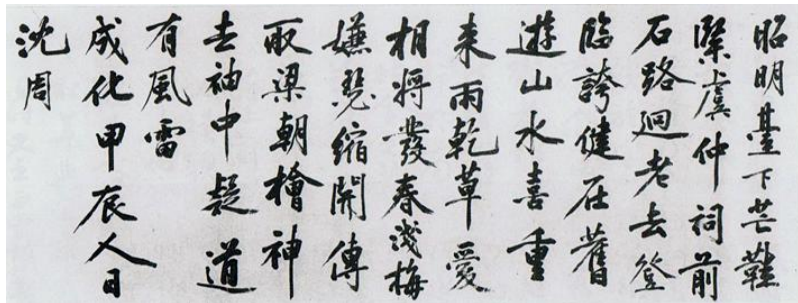 昭明臺下芒鞵
緊虞仲祠前
石路迴老去登
臨誇健在舊
遊山水喜重
來雨乾草愛
相將發春淺梅
嫌瑟縮開傳
取梁朝檜神
去袖中疑道
有風雷
成化甲辰人日
沈周